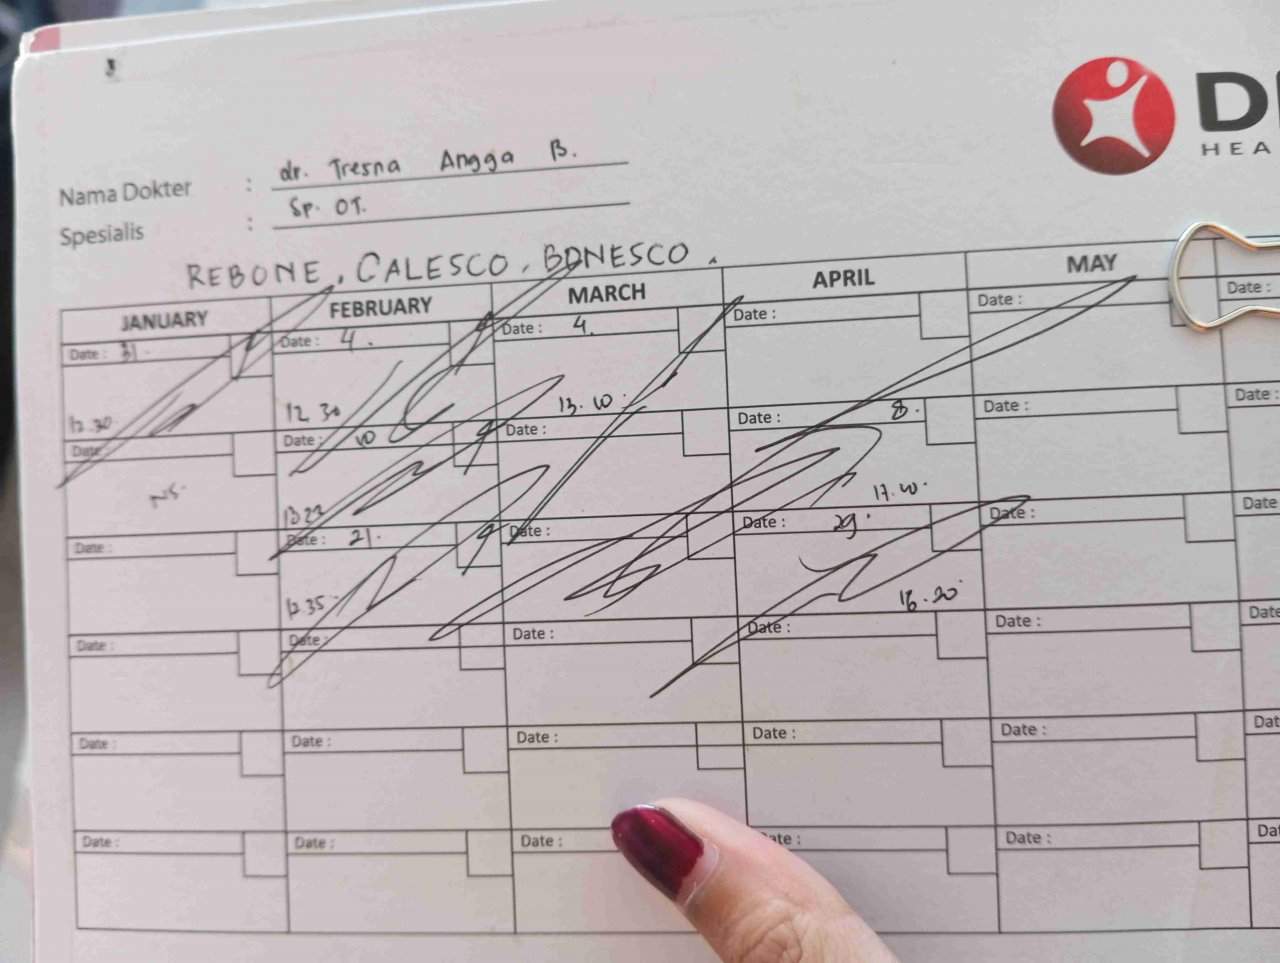 D
HEA
Nama Dokter : dr. Tresna Angga B.
Spesialis : Sp. OT.
REBONE, CALESCO, BONESCO.
JANUARY FEBRUARY MARCH APRIL MAY
Date : 31. Date : 4. Date : 4. Date : Date : Date :
12.30 12.30 13.10.
Date : Date : 10 Date : Date : 8. Date : Date :
NS.
Date : Date : 21. Date : Date : 29. Date : Date
12.35 16.20
Date : Date : Date : Date : Date : Date
Date : Date : Date : Date : Date : Dat
Date : Date : Date : ate : Date : Dat